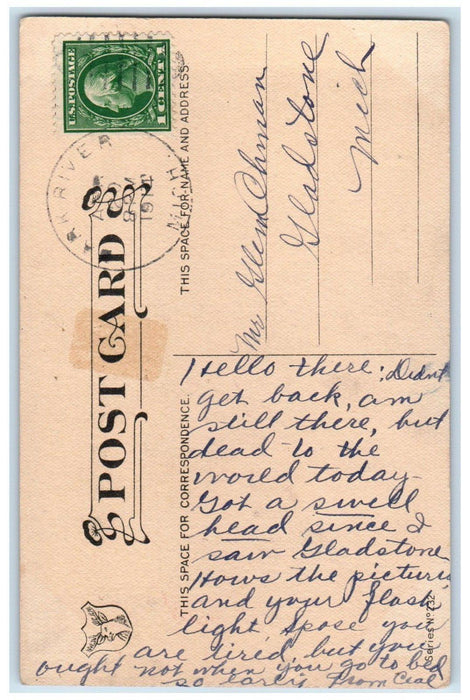 U.S. POSTAGE
1 CENT 1
BARK RIVER
MICH.
APR
1914
POST CARD
THIS SPACE FOR NAME AND ADDRESS
Mr Glenn Ohman
Gladstone
Mich
THIS SPACE FOR CORRESPONDENCE.
Hello there; Didnt
get back, am
still there, but
dead to the
world today.
Got a swell
head since I
saw Gladstone
Hows the pictures
and your flash
light Spose you
are tired, but you
ought not when you go to bed
so early. From
Series No 232